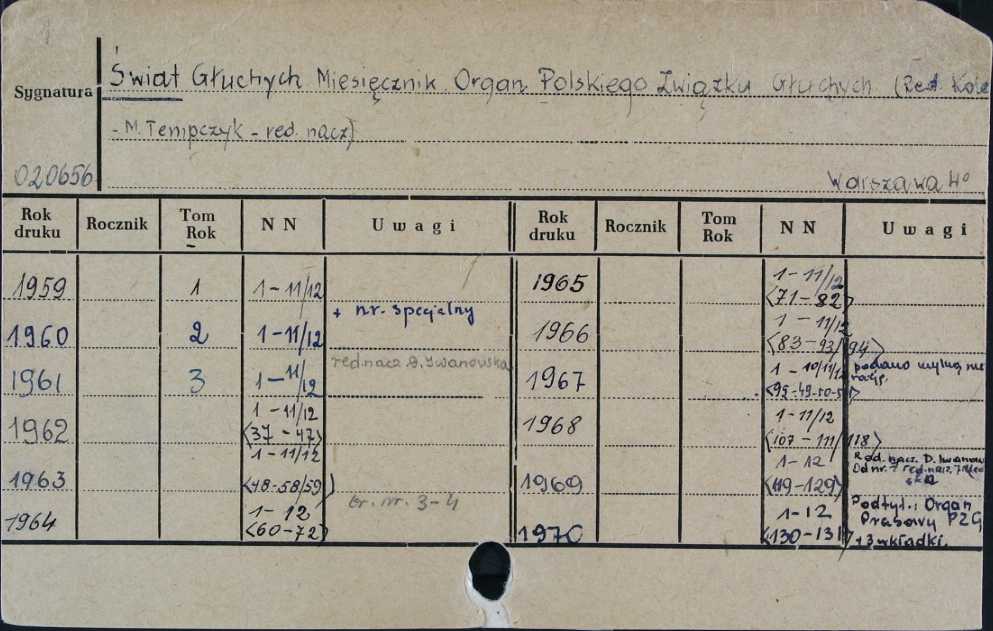 Sygnatura
Świat Głuchych Miesięcznik Organ Polskiego Związku Głuchych (Red. Kole
- M. Tempczyk - red. nacz)
020656
Warszawa 4°
Rok druku Rocznik Tom Rok NN Uwagi Rok druku Rocznik Tom Rok NN Uwagi
1959 1 1-11/12
+ nr. specjalny
1960 2 1-11/12
red. nacz. D. Iwanowska
1961 3 1-11/12
1962 1-11/12
<37-47>
1963 1-11/12
<48-58/59>
br. nr. 3-4
1964 1-12
<60-72>
1965 1-11/12
<71-82>
1966 1-11/12
<83-93/94>
1967 1-10/11/12
podano mylną nu
1968 1-11/12
<107-111/118>
1969 1-12
<119-129>
Red. nacz. D. Iwanow
Od nr. 7 red. nacz.
1970 1-12
<130-131>
Podtyt.: Organ
Prasowy PZG
+3 wkładki.